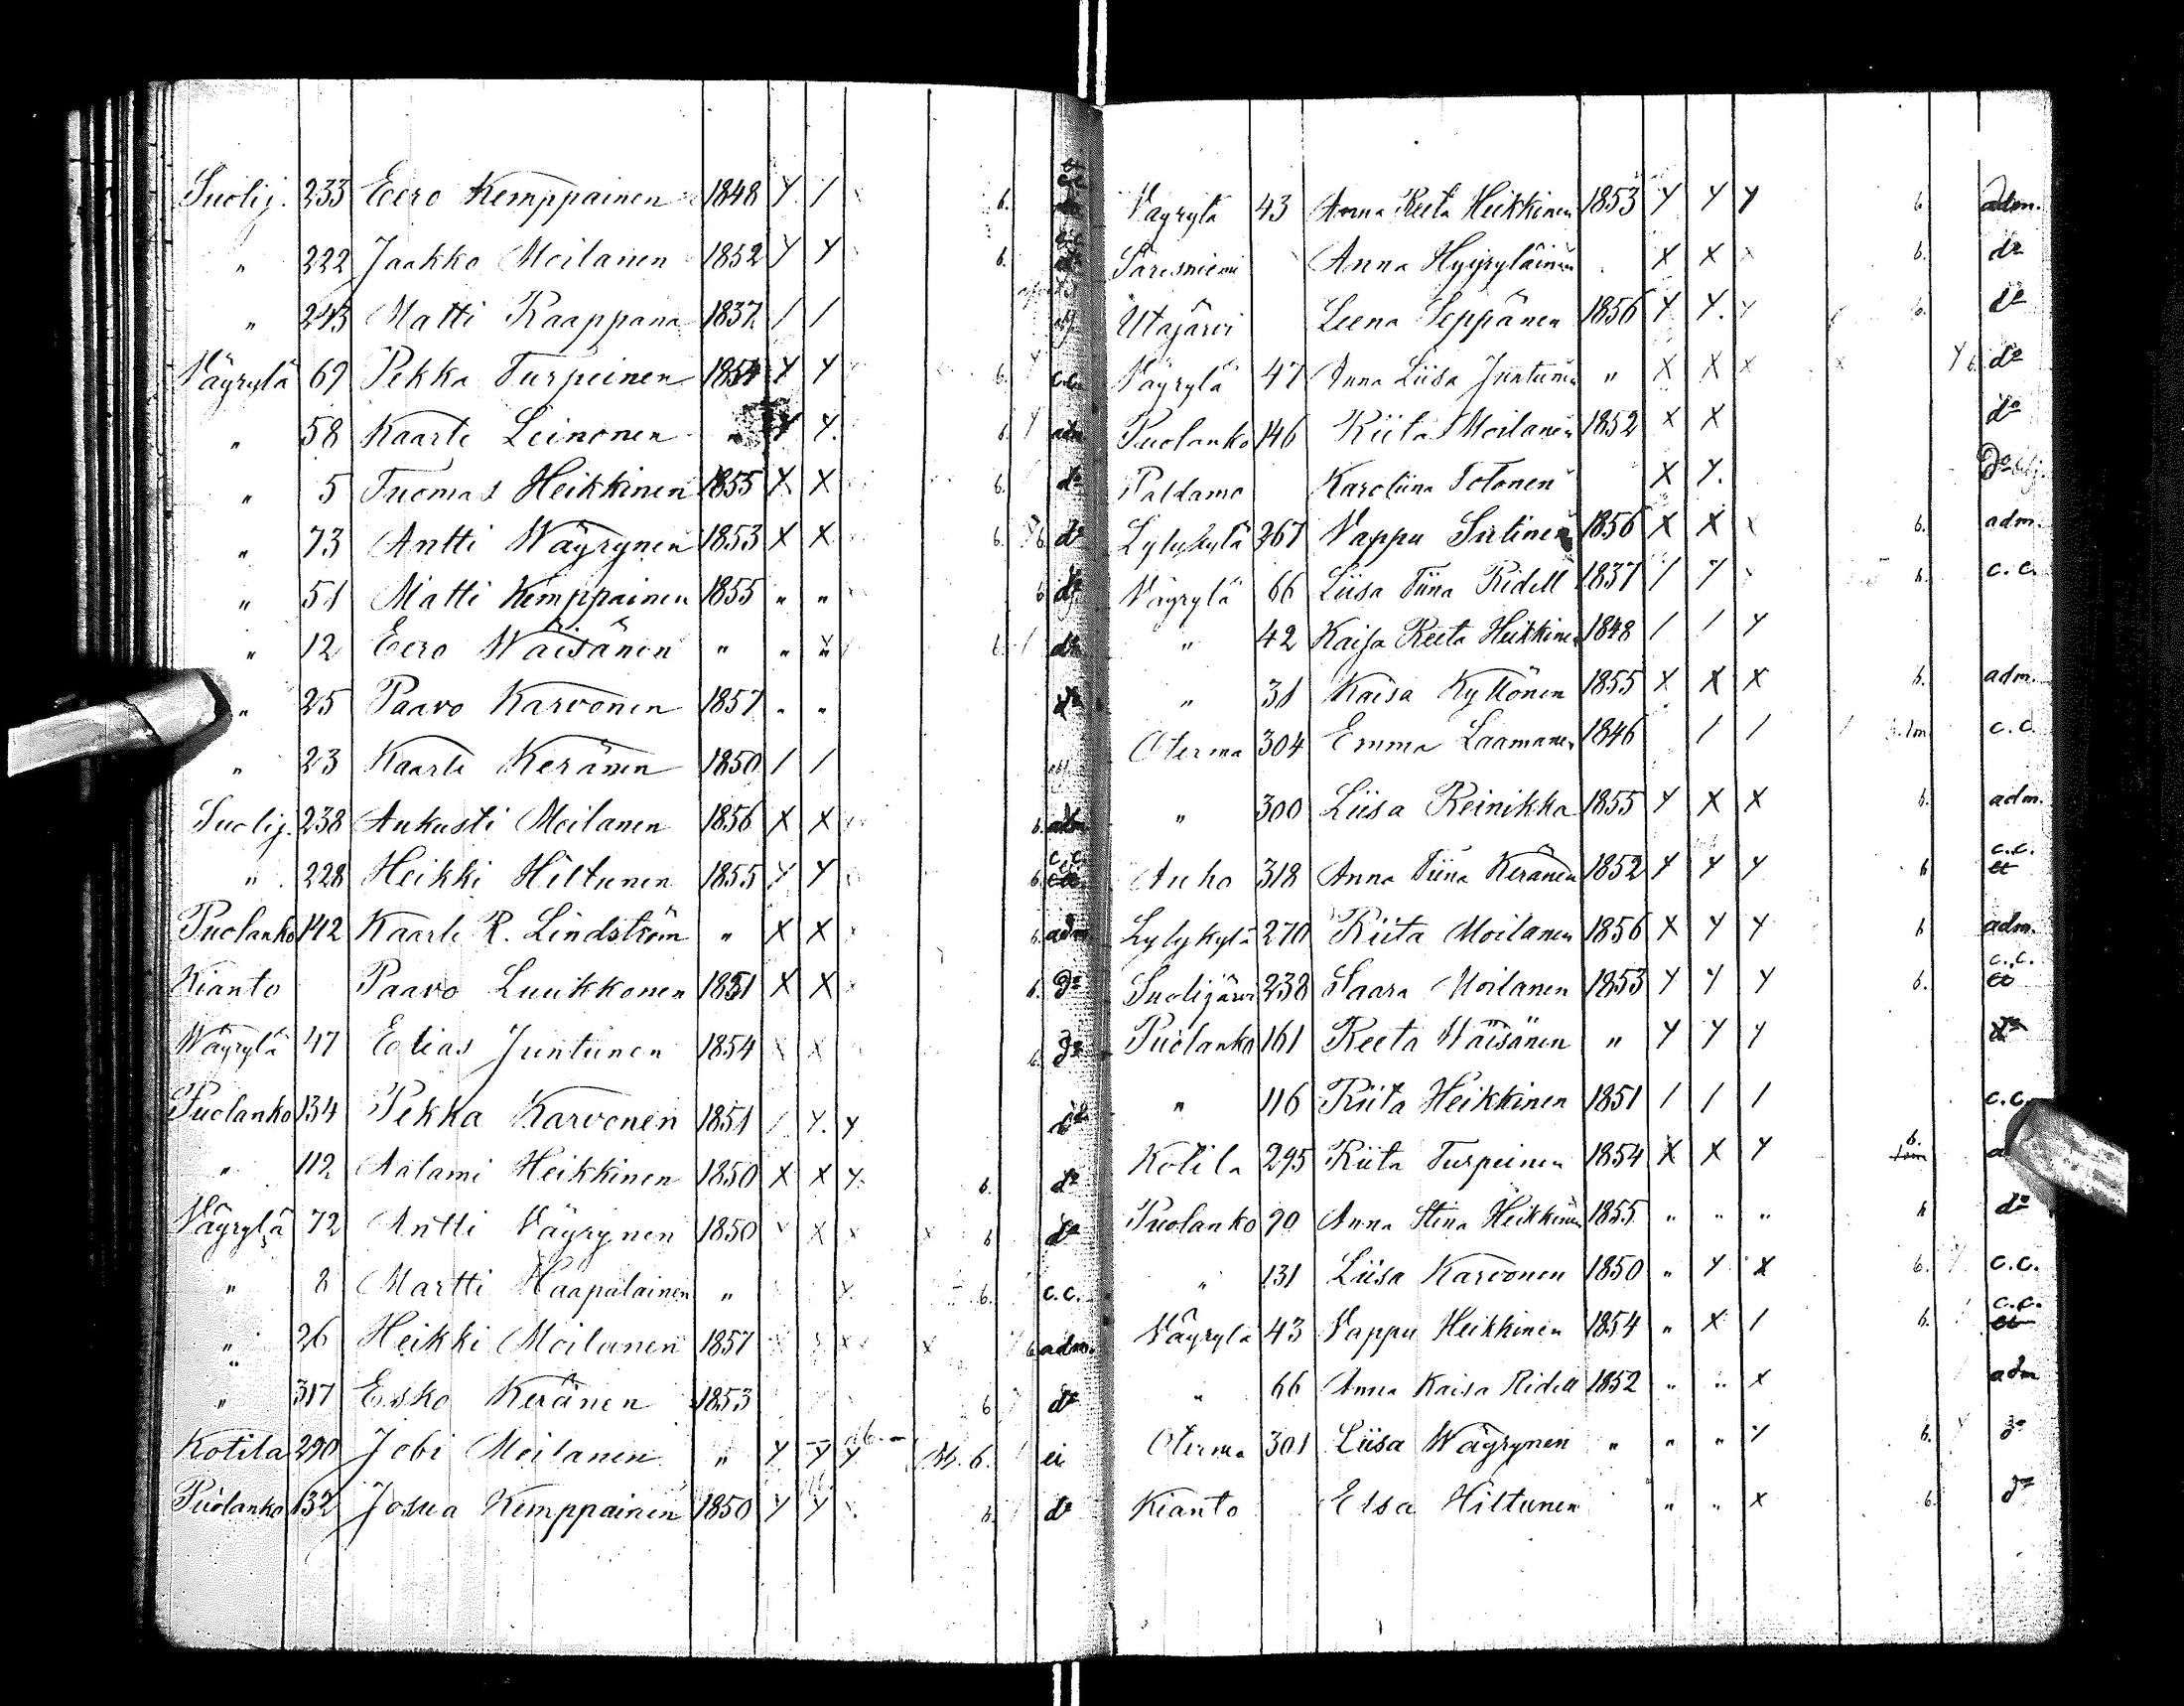 Suolij. 233 Eero Kemppainen 1848 Y / b.
" 222 Jaakko Moilanen 1852 Y Y b.
" 243 Matti Kaappana 1837 / /
Väyrylä 69 Pekka Turpeinen 1854 Y Y b. Y c.c.
" 58 Kaarle Leinonen " Y Y. b. Y adm.
" 5 Tuomas Heikkinen 1855 X X b. do
" 73 Antti Wäyrynen 1853 X X b. do
" 51 Matti Kemppainen 1855 " " b do
" 12 Eero Wäisänen " " " b. / do
" 25 Paavo Karvonen 1857 " " do
" 23 Kaarle Keränen 1850 / /
Suolij. 238 Aukusti Moilanen 1856 X X b. adm.
" 228 Heikki Hiltunen 1855 Y Y b. c.c.
Puolanko 142 Kaarle R. Lindström " X X b. adm
Kianto Paavo Luukkonen 1851 X X b. do
Wäyrylä 47 Eelias Juntunen 1854 X X b. do
Puolanko 134 Pekka Karvonen 1851 / Y. Y do
" 112 Aatami Heikkinen 1850 X X Y. b. do
Väyrylä 72 Antti Väyrynen 1850 X X X X b do
" 8 Martti Haapalainen " Y. b. c.c.
" 26 Heikki Moilanen 1857 X X X X b adm.
" 317 Esko Keränen 1853 b do
Kotila 290 Jobi Moilanen " Y Y Y b. ei
Puolanko 132 Josua Kemppainen 1850 Y Y b. do
Väyrylä 43 Anna Reeta Heikkinen 1853 Y Y Y b adm.
Säresniemi Anna Hyyryläinen X X X b. do
Utajärvi Leena Seppänen 1856 Y Y. Y b. do
Väyrylä 47 Anna Liisa Juntunen " X X X X Y b. do
Puolanko 146 Riita Moilanen 1852 X X do
Paldamo Karoliina Tolonen X Y. do
Lylykylä 267 Vappu Siitinen 1856 X X X b. adm.
Väyrylä 66 Liisa Tiina Ridell 1837 / Y b. c.c.
" 42 Kaisa Reeta Heikkinen 1848 / / Y
" 31 Kaisa Kyllönen 1855 X X X b. adm.
Oterma 304 Emma Laamanen 1846 / / / c.c.
" 300 Liisa Reinikka 1855 Y X X b. adm.
Auho 318 Anna Tiina Keränen 1852 Y Y Y b c.c.
Lylykylä 270 Riita Moilanen 1856 X Y Y b adm.
Suolijärvi 238 Saara Moilanen 1853 Y Y Y b. c.c.
Puolanko 161 Reeta Wäisänen " Y Y Y do
" 116 Riita Heikkinen 1851 / / / c.c.
Kotila 295 Riita Turpeinen 1854 X X Y b.
Puolanko 90 Anna Stina Heikkinen 1855 " " " b do
" 131 Liisa Karvonen 1850 " Y X b. Y c.c.
Väyrylä 43 Vappu Heikkinen 1854 " X / b. / c.c.
" 66 Anna Kaisa Ridell 1852 " " X adm
Oterma 301 Liisa Wäyrynen " " " Y b. Y do
Kianto Elsa Hiltunen " " X b. do